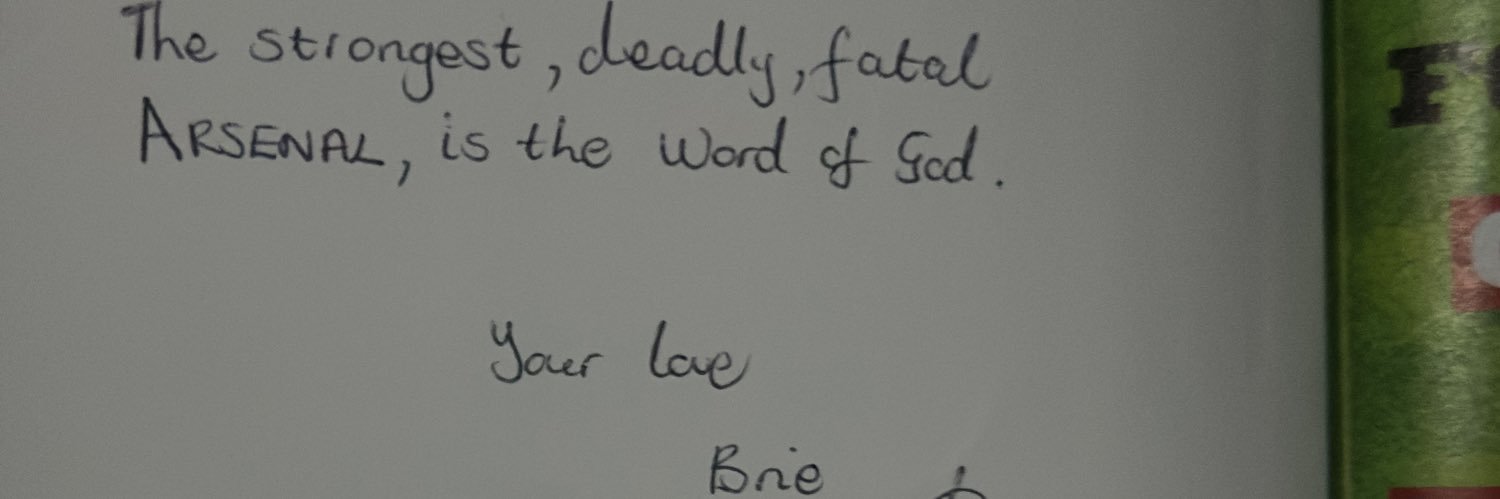 The strongest, deadly, fatal
ARSENAL, is the Word of God.
Your love
Brie